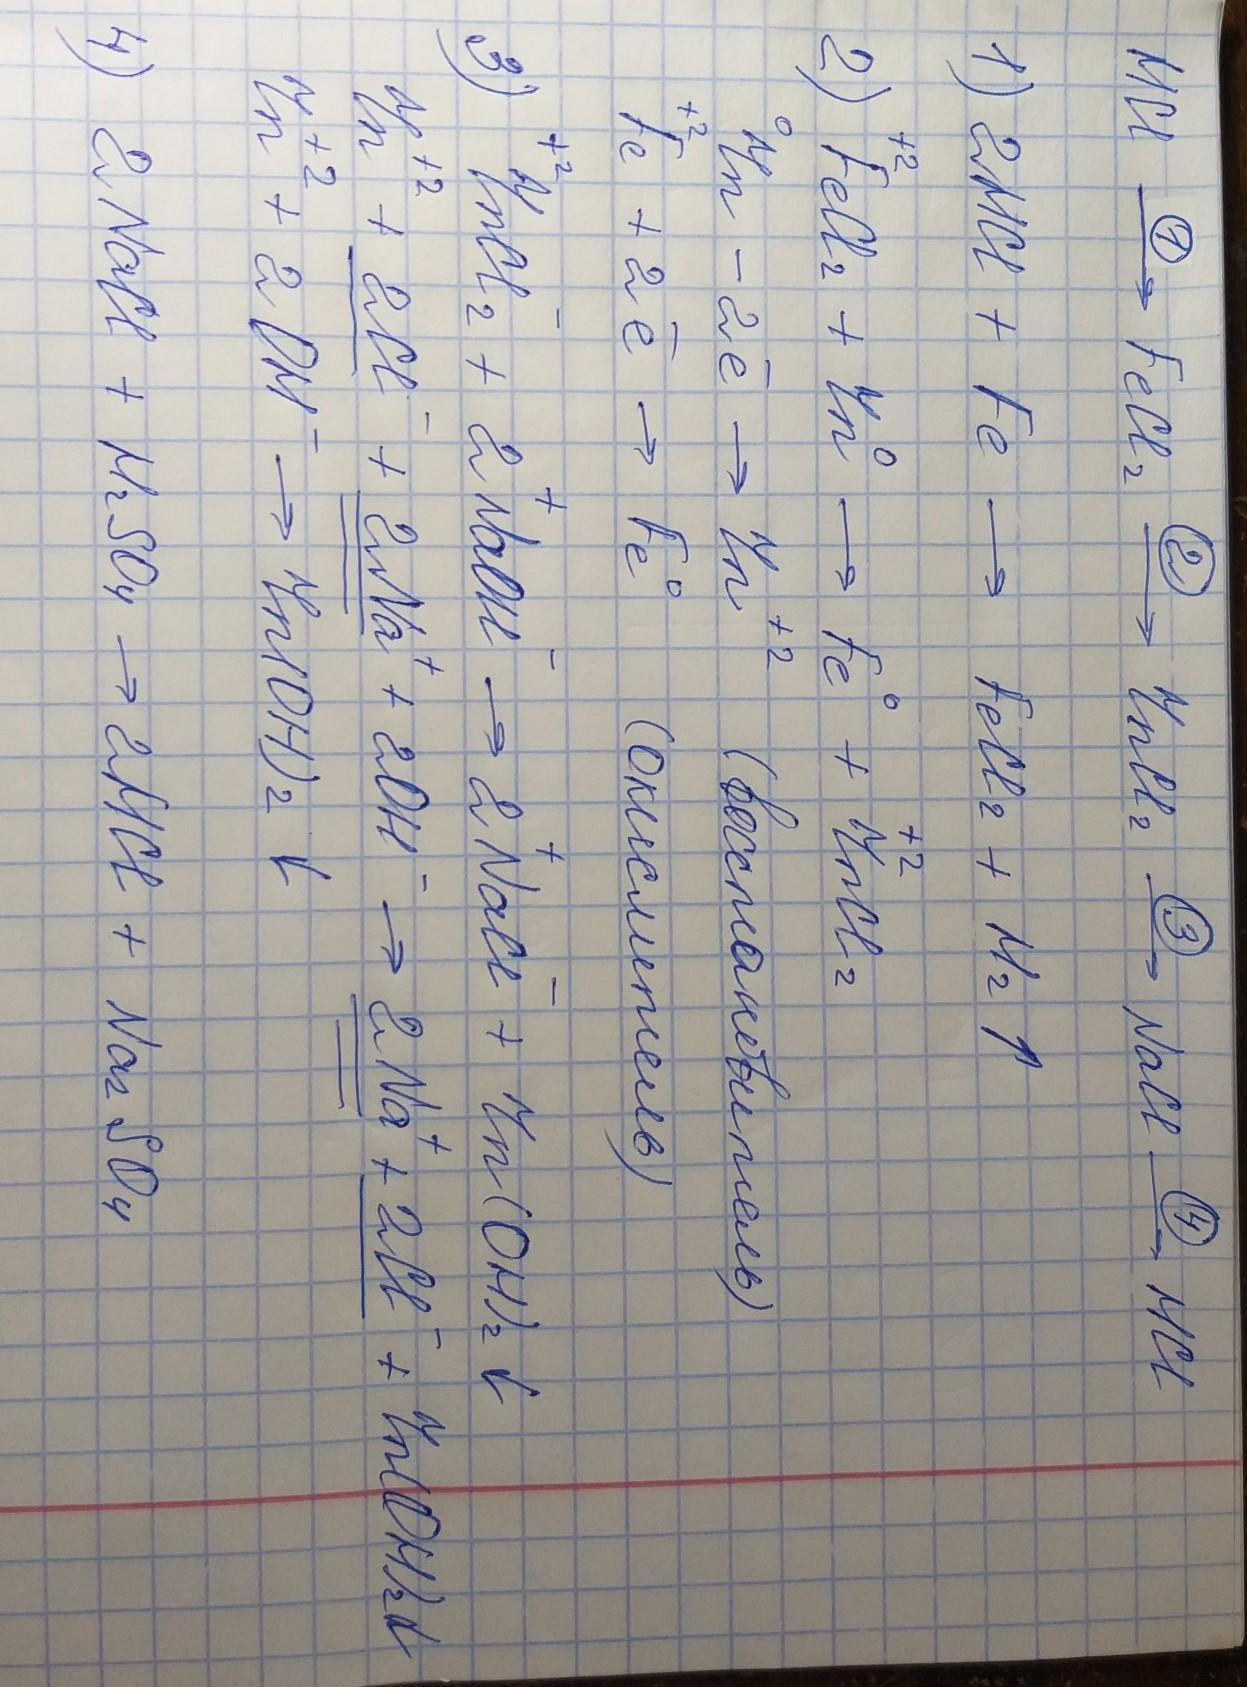 HCl ①→ FeCl₂ ②→ ZnCl₂ ③→ NaCl ④→ HCl
1) 2HCl + Fe → FeCl₂ + H₂↑
2) Fe⁺²Cl₂ + Zn⁰ → Fe⁰ + Zn⁺²Cl₂
Zn⁰ - 2ē → Zn⁺² (восстановитель)
Fe⁺² + 2ē → Fe⁰ (окислитель)
3) Zn⁺²Cl₂⁻ + 2Na⁺OH⁻ → 2Na⁺Cl⁻ + Zn(OH)₂↓
Zn⁺² + 2Cl⁻ + 2Na⁺ + 2OH⁻ → 2Na⁺ + 2Cl⁻ + Zn(OH)₂↓
Zn⁺² + 2OH⁻ → Zn(OH)₂↓
4) 2NaCl + H₂SO₄ → 2HCl + Na₂SO₄